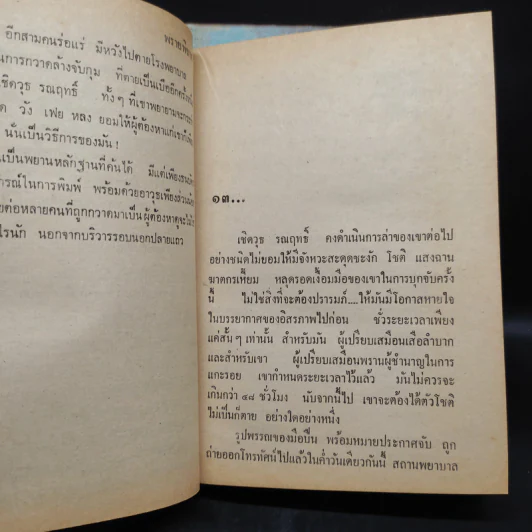 อีกสามคนร่อแร่ มีหวังไปตายโรงพยาบาล
นการกวาดล้างจับกุม ที่ตายเป็นเบืออีกครั้งหนึ่ง
เชิดวุธ รณฤทธิ์ ทั้งๆ ที่เขาพยายามจะกระทำ
ด วัง เฟย หลง ยอมให้ผู้ต้องหาแก่เขา
นั่นเป็นวิธีการของมัน!
เป็นพยานหลักฐานที่ค้นได้ มีแต่เพียง
กรณ์ในการพิมพ์ พร้อมด้วยอาวุธเพียง
ยต่อหลายคนที่ถูกกวาดมาเป็นผู้ต้องหา
ไรนัก นอกจากบริวารรอบนอกปลายแถว
๑๓...
เชิดวุธ รณฤทธิ์ คงดำเนินการล่าของเขาต่อไป
อย่างชนิดไม่ยอมให้มีจังหวะสะดุดชะงัก โชติ แสงฉาน
ฆาตกรเหี้ยม หลุดรอดเงื้อมมือของเขาในการบุกจับครั้ง
นี้ ไม่ใช่สิ่งที่จะต้องปรารมภ์....ให้มันมีโอกาสหายใจ
ในบรรยากาศของอิสรภาพไปก่อน ชั่วระยะเวลาเพียง
แค่สั้นๆ เท่านั้น สำหรับมัน ผู้เปรียบเสมือนเสือลำบาก
และสำหรับเขา ผู้เปรียบเสมือนพรานผู้ชำนาญในการ
แกะรอย เขากำหนดระยะเวลาไว้แล้ว มันไม่ควรจะ
เกินกว่า ๔๘ ชั่วโมง นับจากนี้ไป เขาจะต้องได้ตัวโชติ
ไม่เป็นก็ตาย อย่างใดอย่างหนึ่ง
รูปพรรณของมือปืน พร้อมหมายประกาศจับ ถูก
ถ่ายออกโทรทัศน์ไปแล้วในค่ำวันเดียวกันนี้ สถานพยาบาล